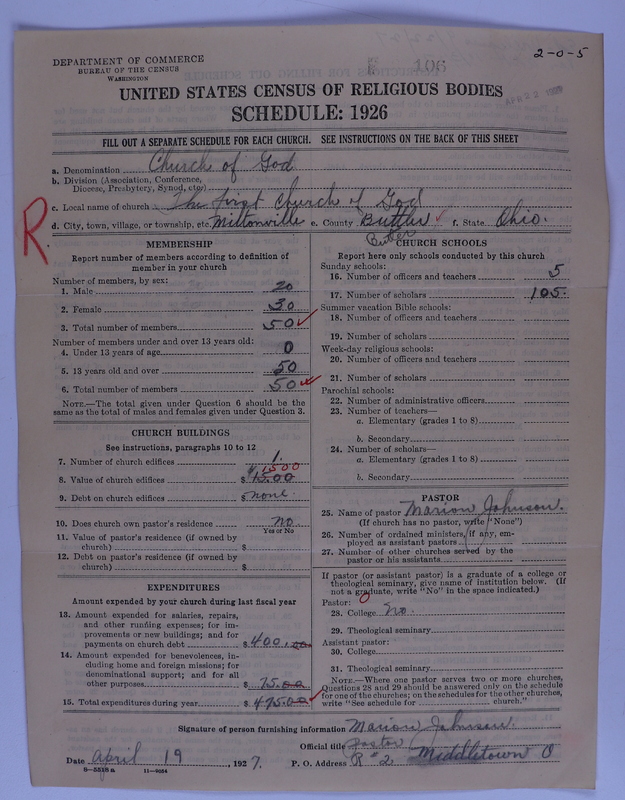 DEPARTMENT OF COMMERCE
BUREAU OF THE CENSUS
WASHINGTON
106
2-0-5
APR 22
UNITED STATES CENSUS OF RELIGIOUS BODIES
SCHEDULE: 1926
FILL OUT A SEPARATE SCHEDULE FOR EACH CHURCH. SEE INSTRUCTIONS ON THE BACK OF THIS SHEET
a. Denomination Church of God
b. Division (Association, Conference, Diocese, Presbytery, Synod, etc.)
c. Local name of church The first Church of God
d. City, town, village, or township, etc. Miltonville e. County Buttler f. State Ohio.
Butler
R
MEMBERSHIP
Report number of members according to definition of
member in your church
Number of members, by sex:
1. Male 20
2. Female 30
3. Total number of members 50
Number of members under and over 13 years old:
4. Under 13 years of age 0
5. 13 years old and over 50
6. Total number of members 50
NOTE.—The total given under Question 6 should be
same as the total of males and females given under Question 3.
CHURCH BUILDINGS
See instructions, paragraphs 10 to 12
7. Number of church edifices 1.
1500
8. Value of church edifices $ 15.00
9. Debt on church edifices $ none
10. Does church own pastor's residence no
Yes or No
11. Value of pastor's residence (if owned by
church) $
12. Debt on pastor's residence (if owned by
church) $
EXPENDITURES
Amount expended by your church during last fiscal year
13. Amount expended for salaries, repairs,
and other running expenses; for im-
provements or new buildings; and for
payments on church debt $ 400.00
14. Amount expended for benevolences, in-
cluding home and foreign missions; for
denominational support; and for all
other purposes 75.00
15. Total expenditures during year $ 475.00
CHURCH SCHOOLS
Report here only schools conducted by this church
Sunday schools:
16. Number of officers and teachers 5
17. Number of scholars 105.
Summer vacation Bible schools:
18. Number of officers and teachers
19. Number of scholars
Week-day religious schools:
20. Number of officers and teachers
21. Number of scholars
Parochial schools:
22. Number of administrative officers
23. Number of teachers—
a. Elementary (grades 1 to 8)
b. Secondary
24. Number of scholars—
a. Elementary (grades 1 to 8)
b. Secondary
PASTOR
25. Name of pastor Marion Johnson.
(If church has no pastor, write "None")
26. Number of ordained ministers, if any, em-
ployed as assistant pastors
27. Number of other churches served by the
pastor or his assistants
If pastor (or assistant pastor) is a graduate of a college or
theological seminary, give name of institution below. (If
not a graduate, write "No" in the space indicated.)
Pastor: 0
28. College no.
29. Theological seminary
Assistant pastor:
30. College
31. Theological seminary
NOTE.—Where one pastor serves two or more churches,
Questions 28 and 29 should be answered only on the schedule
for one of the churches; on the schedules for the other churches,
write "See schedule for church."
Signature of person furnishing information Marion Johnson.
Official title pastor
Date april 19, 1927. P. O. Address R #2. Middletown O
8-5518a 11-9034